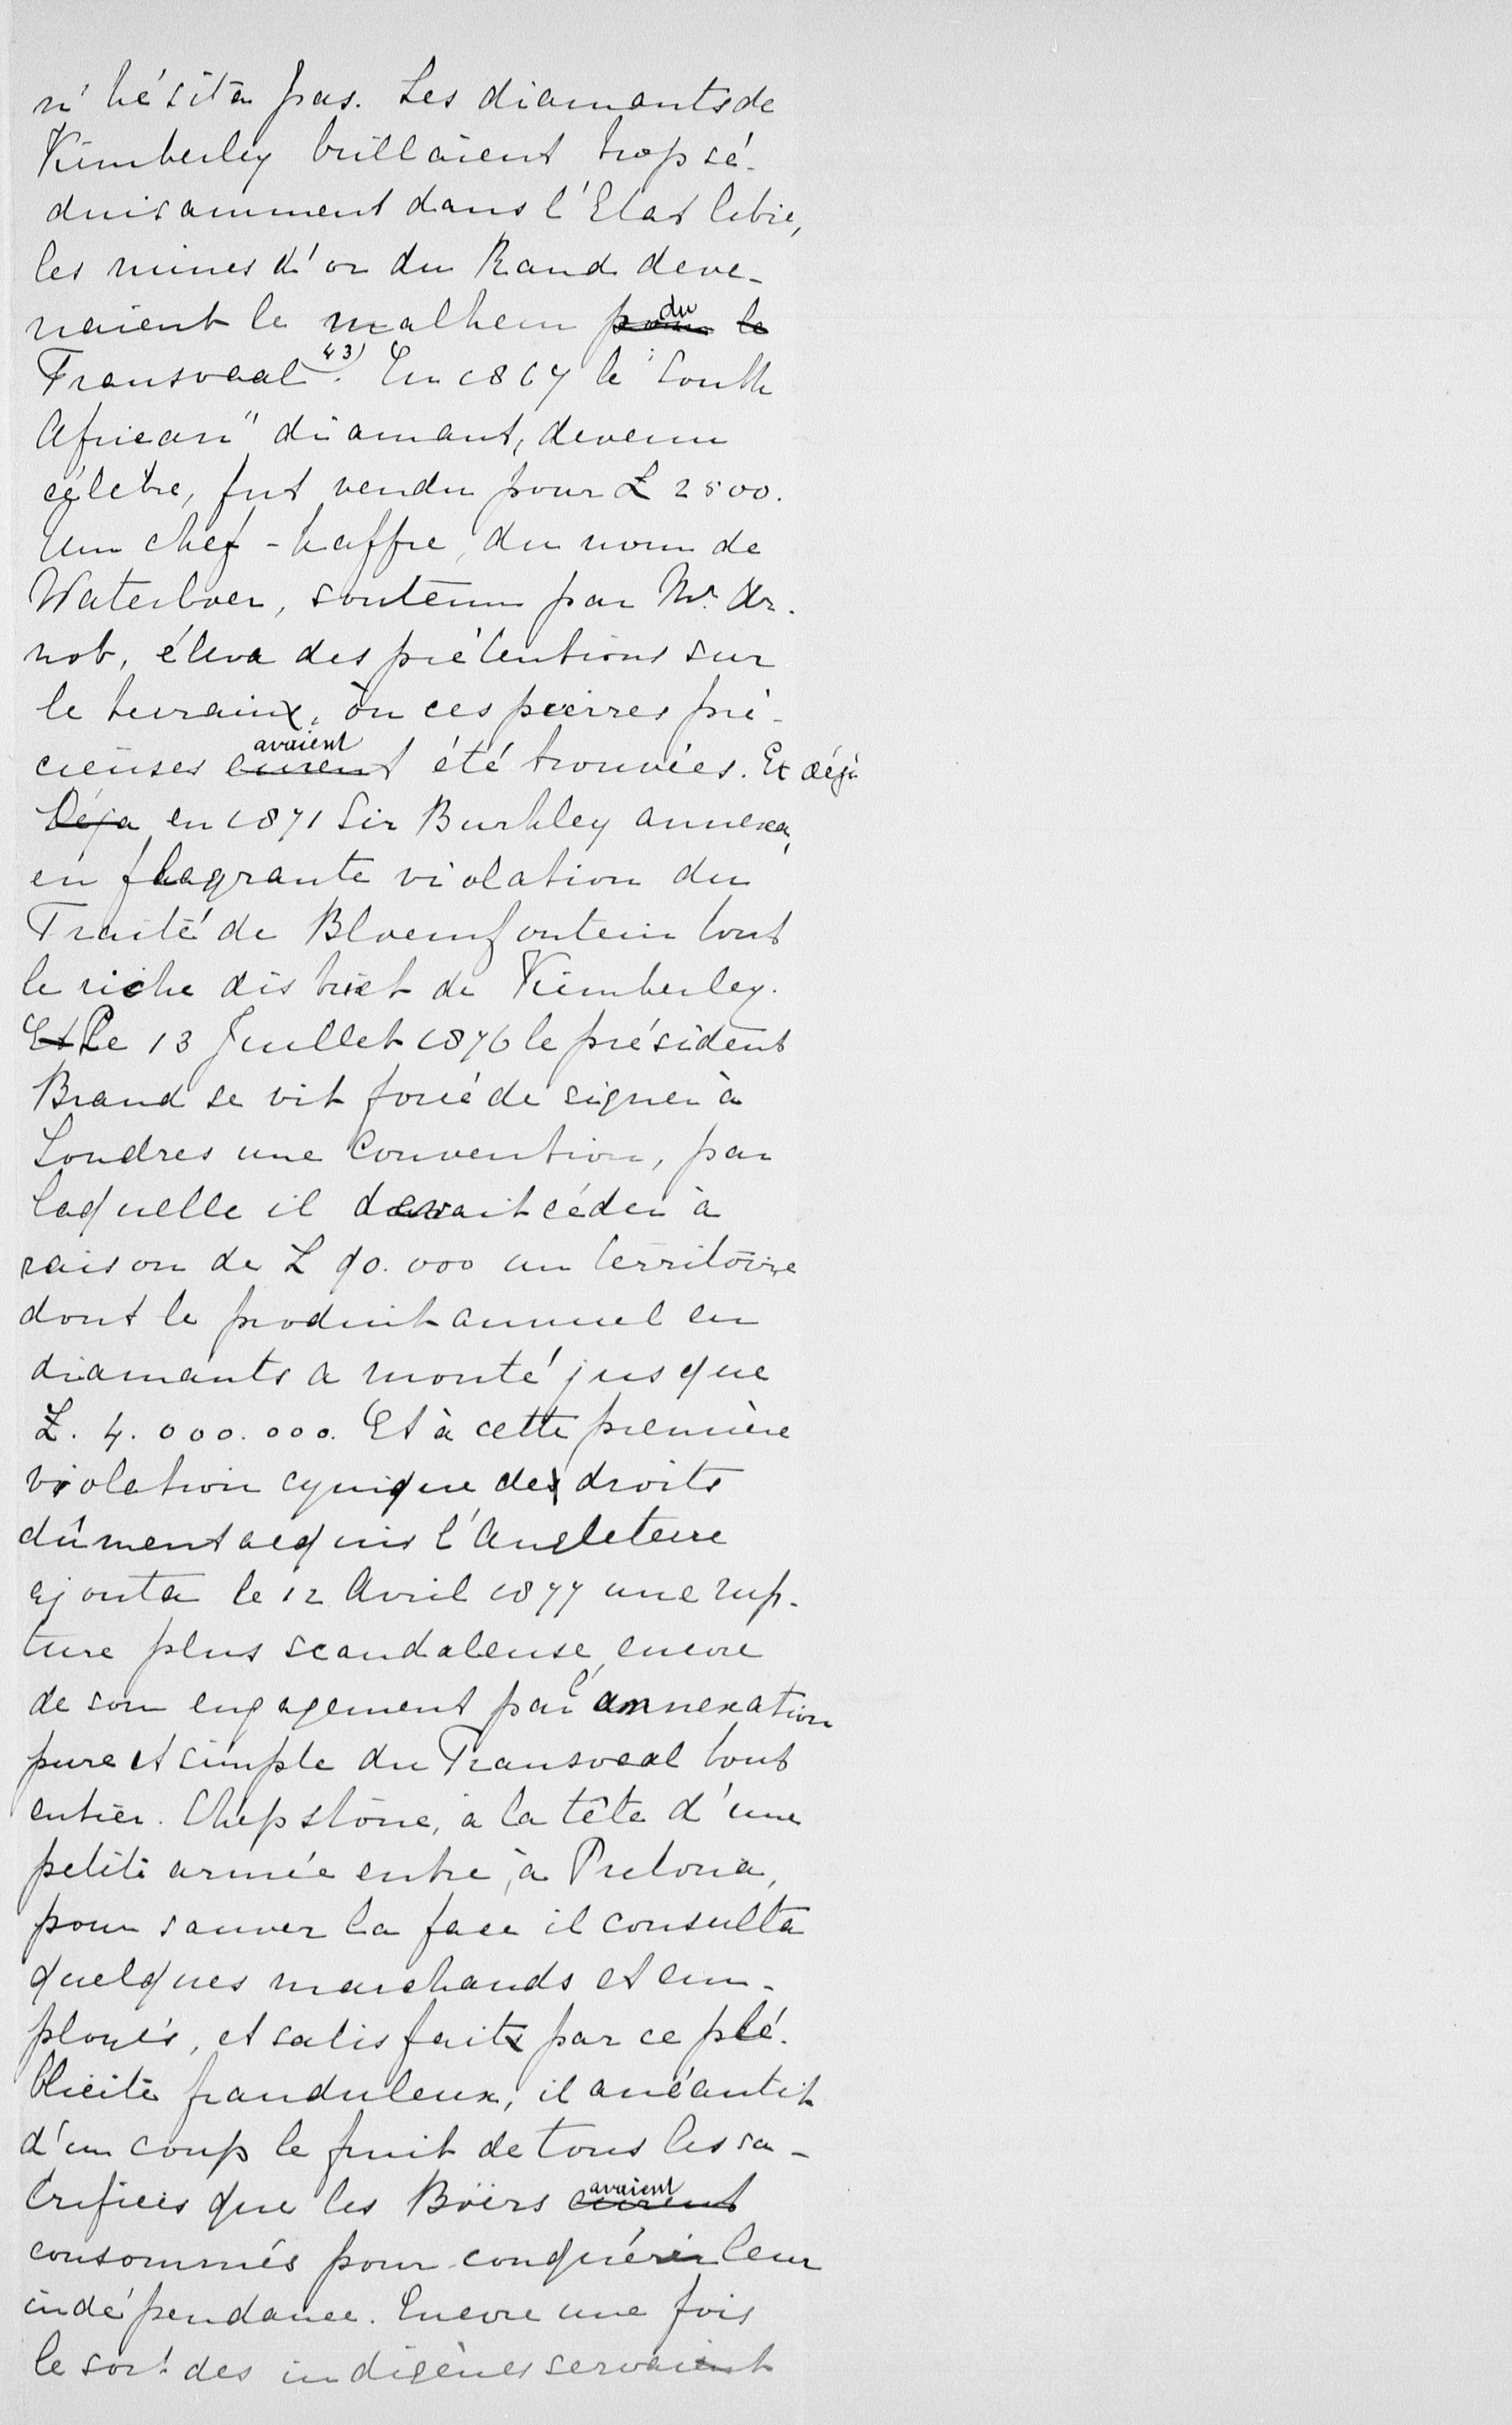 n'hésita pas. Les diamants de
Kimberley brillaient trop sé-
duisamment dans l'Etat libre,
les mines d'or du Rand deve-
naient le malheur pour le du
Transvaal 43). En 1867 le "South
African" diamant, devenu
célèbre, fut vendu pour £ 2500.
Un chef-kaffre, du nom de
Waterboer, soutenu par Mr. Ar-
not, éleva des prétentions sur
le terrain, où ces pierres pré-
cieuses eurent avaient été trouvées. Et déjà
Déja en 1871 Sir Barkley annexa,
en flagrante violation du
Traité de Bloemfontein tout
le riche district de Kimberley.
Et Le 13 Juillet 1876 le président
Brand se vit forcé de signer à
Londres une Convention, par
laquelle il devait céder à
raison de £ 90.000 un territoire
dont le produit annuel en
diamants a monté jusque
£. 4.000.000. Et à cette première
violation cynique de droits
dûment acquis l'Angleterre
ajouta le 12 Avril 1877 une rup-
ture plus scandaleuse encore
de son engagement par l'annexation
pure et simple du Transvaal tout
entier. Chepstone, à la tête d'une
petite armée entre à Pretoria,
pour sauver la face il consulta
quelques marchands et em-
ployés, et satisfait par ce plé-
biscite frauduleux, il anéantit
d'un coup le fruit de tous les sa-
crifices que les Boërs eurent avaient
consommés pour conquérir leur
indépendance. Encore une fois
le sort des indigènes servait